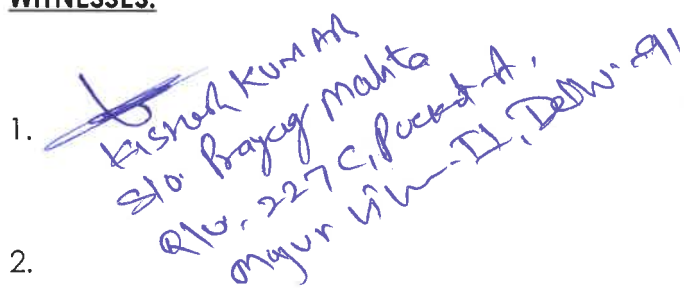 WITNESSES:
1.
Kishesh KUMAR
S/o. Prayag Mahto
R/o, 227 C, Pocket-A,
Mayur Vihar-II, Delhi-91
2.